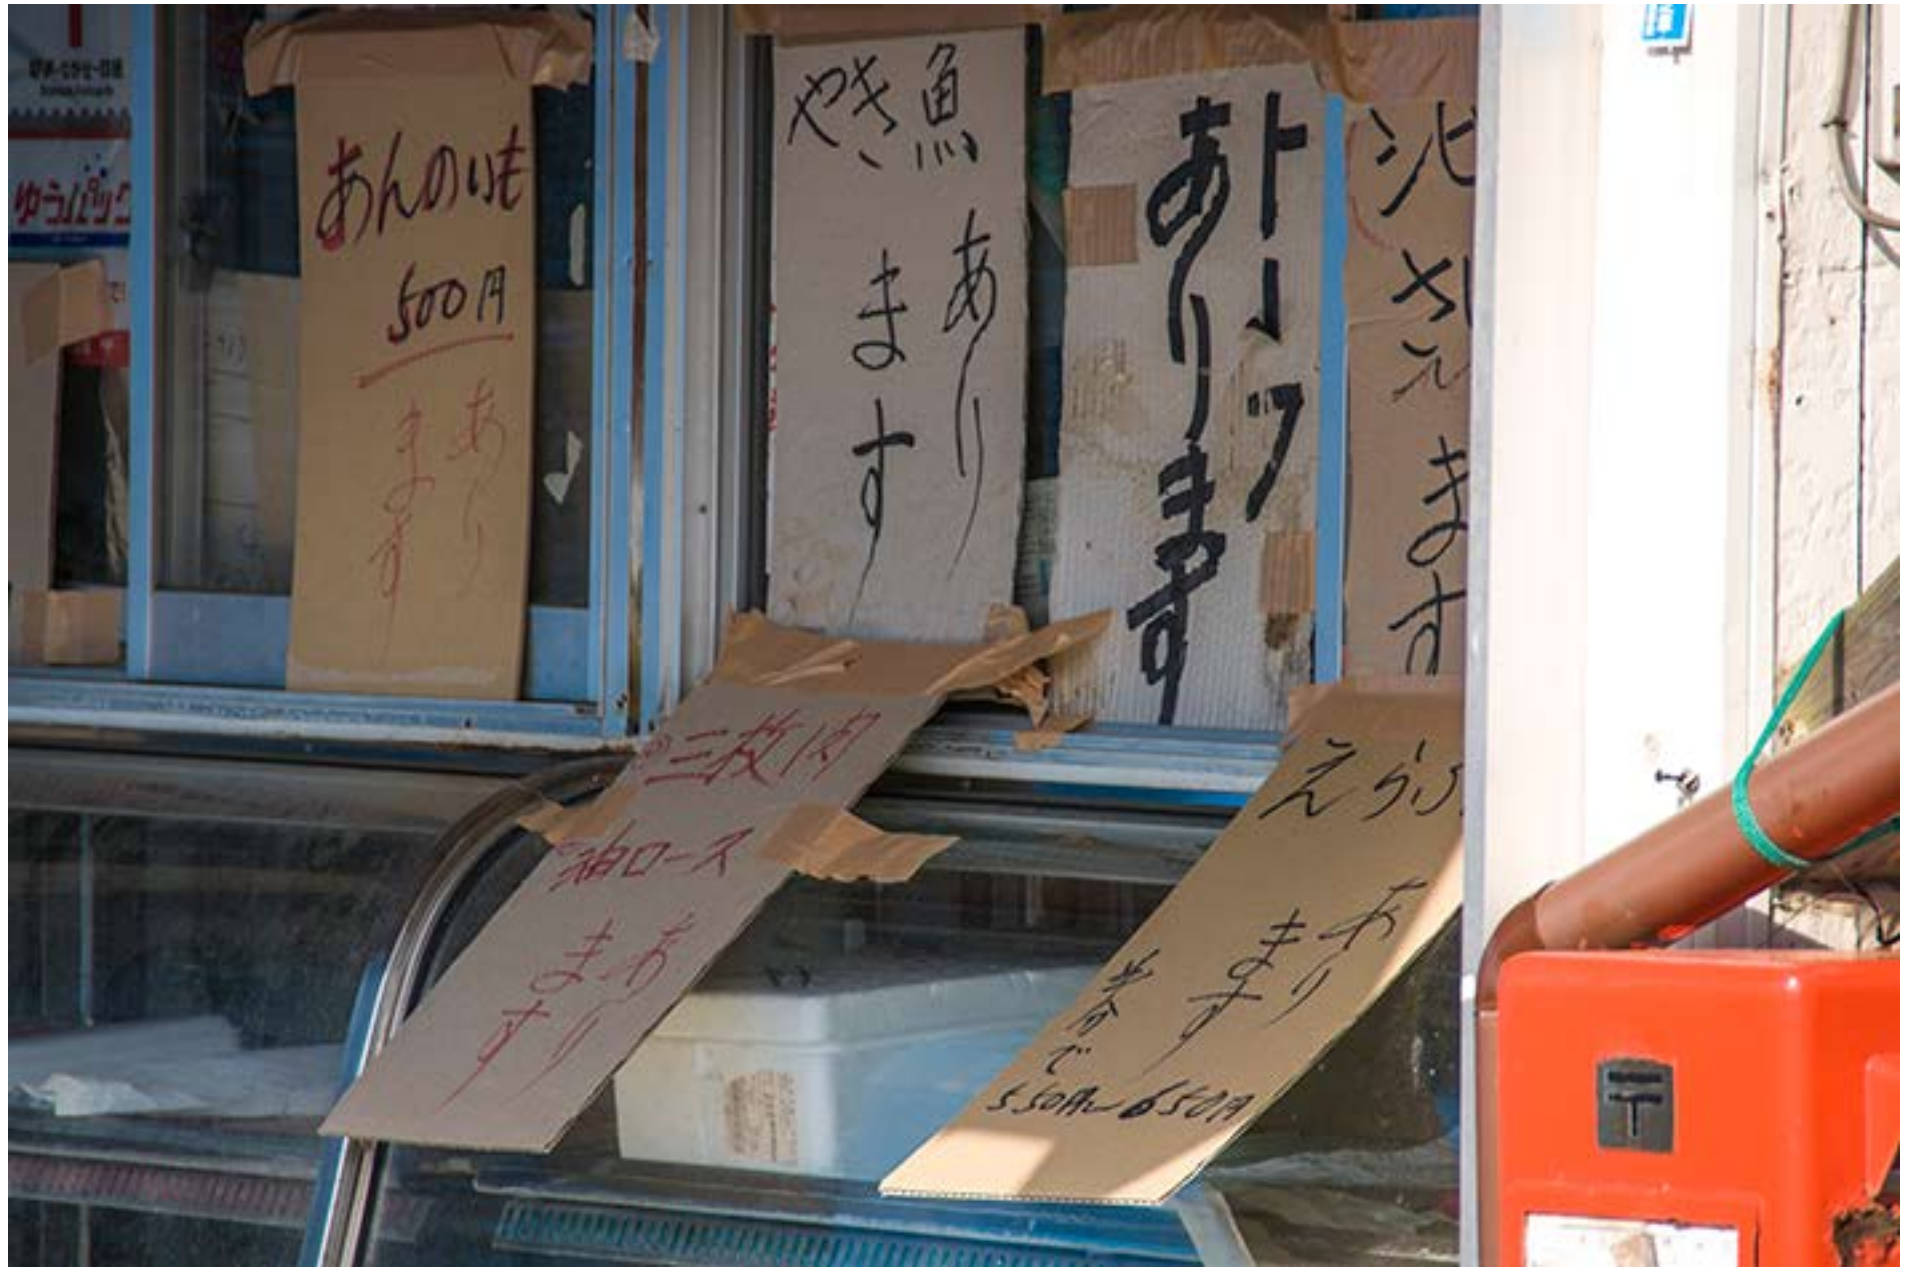 ゆうパック
あんのいも
500円
あり
ます
やき魚
あり
ます
トーフ
あります
シビ
ます
三枚肉
ロース
あり
ます
えらぶ
あり
ます
半分で
550円～650円
〒